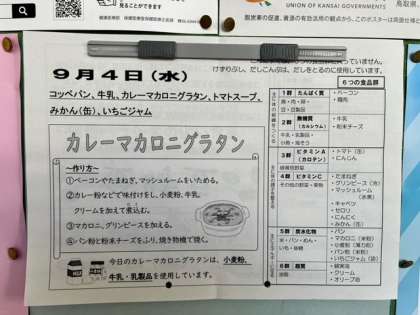 見ることができます
UNION OF KANSAI GOVERNMENTS
鳥取県
脱炭素の促進、資源の有効活用の観点から、このポスターは両面仕様
9月4日(水)
けずりぶし、だしこんぶは、だしをとるのに使用しています。
コッペパン、牛乳、カレーマカロニグラタン、トマトスープ、
みかん(缶)、いちごジャム
カレーマカロニグラタン
~作り方~
①ベーコンやたまねぎ、マッシュルームをいためる。
②カレー粉などで味付けをし、小麦粉、牛乳、
クリームを加えて煮込む。
③マカロニ、グリンピースを加える。
④パン粉と粉末チーズをふり、焼き物機で焼く。
今日のカレーマカロニグラタンは、小麦粉、
牛乳・乳製品を使用しています。
6つの食品群
1群 たんぱく質
魚・肉・卵・
豆・豆製品
・ベーコン
・鶏肉
2群 無機質
(カルシウム)
牛乳・乳製品・
小魚・海そう
・牛乳
・粉末チーズ
3群 ビタミンA
(カロテン)
緑黄色野菜
・トマト(缶)
・にんじん
4群 ビタミンC
その他の野菜・果物
・たまねぎ
・グリンピース(冷)
・マッシュルーム
(水煮)
・キャベツ
・セロリ
・にんにく
・みかん(缶)
5群 炭水化物
米・パン・めん・
いも・砂糖
・パン
・マカロニ(米粉)
・小麦粉(薄力粉)
・パン粉(米粉)
・いちごジャム(袋)
6群 脂質
油脂
・綿実油
・クリーム
・オリーブ油